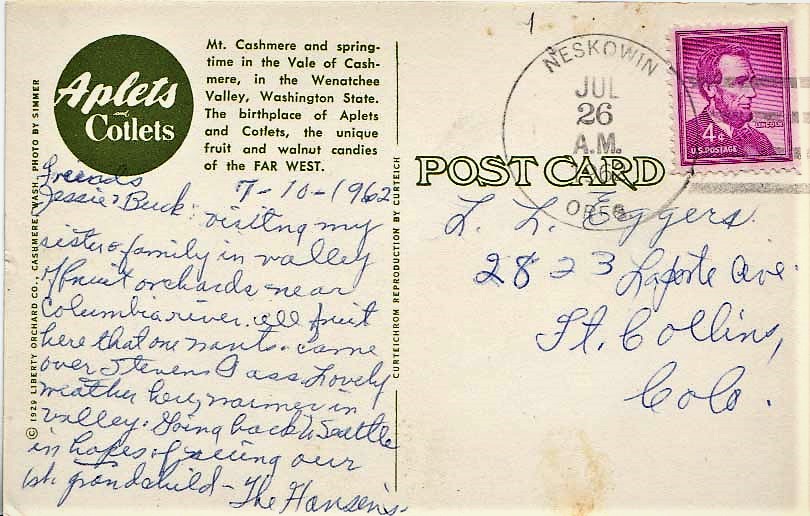 Aplets
and
Cotlets
Mt. Cashmere and spring-
time in the Vale of Cash-
mere, in the Wenatchee
Valley, Washington State.
The birthplace of Aplets
and Cotlets, the unique
fruit and walnut candies
of the FAR WEST.
© 1929 LIBERTY ORCHARD CO., CASHMERE, WASH. PHOTO BY SIMMER
Friends 7-10-1962
Jessie & Buck: visiting my
sister & family in valley
of fruit orchards near
Columbia river. all fruit
here that one wants. came
over Stevens Pass. Lovely
weather here, warmer in
valley. Going back to Seattle
in hopes of seeing our
1st. grandchild - The Hansen's.
CURTEICHROM REPRODUCTION BY CURTEICH
POST CARD
NESKOWIN
JUL
26
A.M.
OREG
LINCOLN
4¢
U.S. POSTAGE
L. L. Eggers.
2823 Laporte Ave.
Ft. Collins,
Colo.